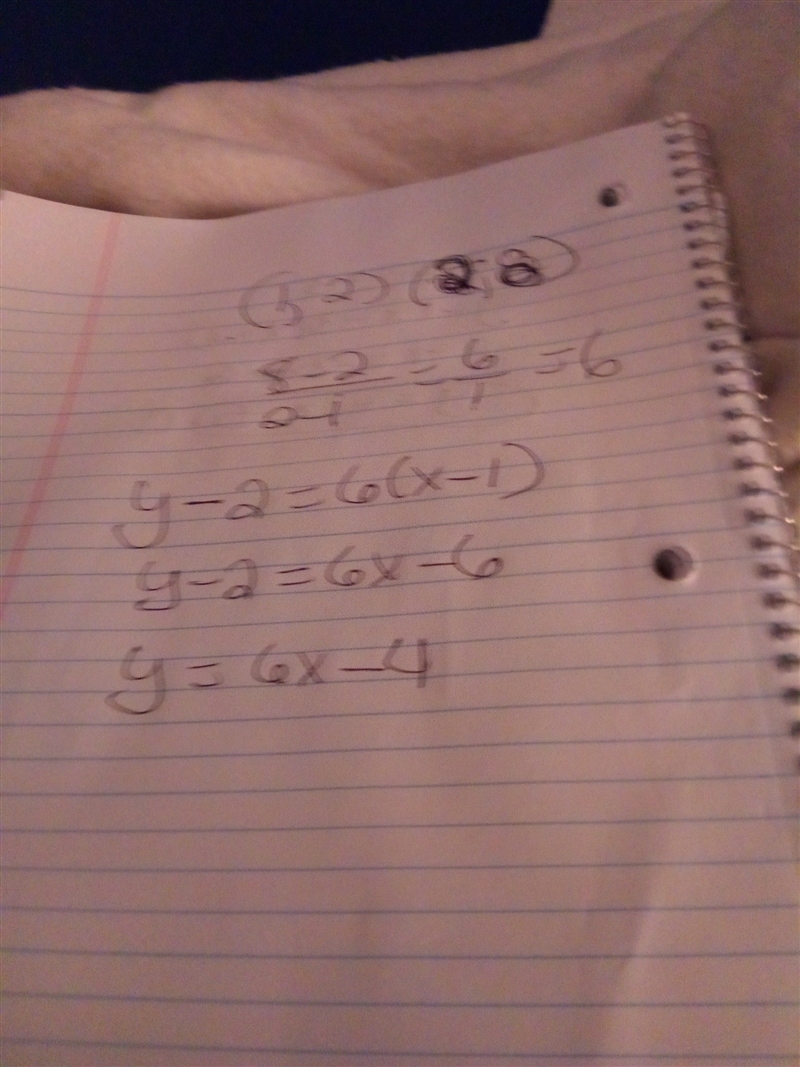 (1,2) (2,8)
8-2/2-1 = 6/1 = 6
y-2=6(x-1)
y-2=6x-6
y=6x-4